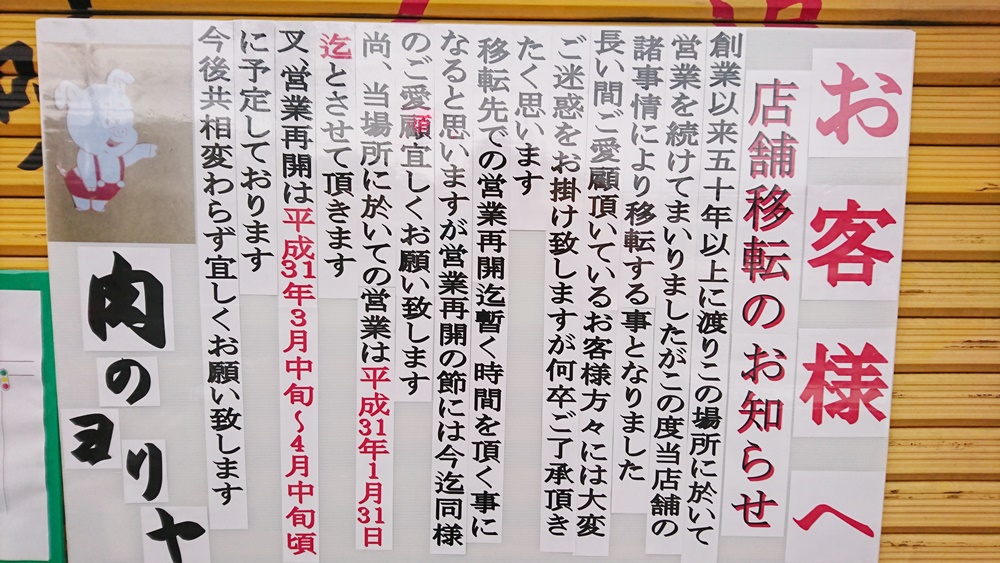 お客様へ
店舗移転のお知らせ
創業以来五十年以上に渡りこの場所に於いて
営業を続けてまいりましたがこの度当店舗の
諸事情により移転する事となりました
長い間ご愛顧頂いているお客様方々には大変
ご迷惑をお掛け致しますが何卒ご了承頂き
たく思います
移転先での営業再開迄暫く時間を頂く事に
なると思いますが営業再開の節には今迄同様
のご愛顧宜しくお願い致します
尚、当場所に於いての営業は平成31年1月31日
迄とさせて頂きます
又、営業再開は平成31年3月中旬〜4月中旬頃
に予定しております
今後共相変わらず宜しくお願い致します
肉のヨリヤ